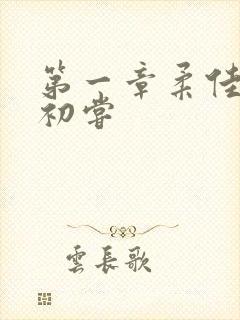 第一章柔佳
初嘗
雲長歌